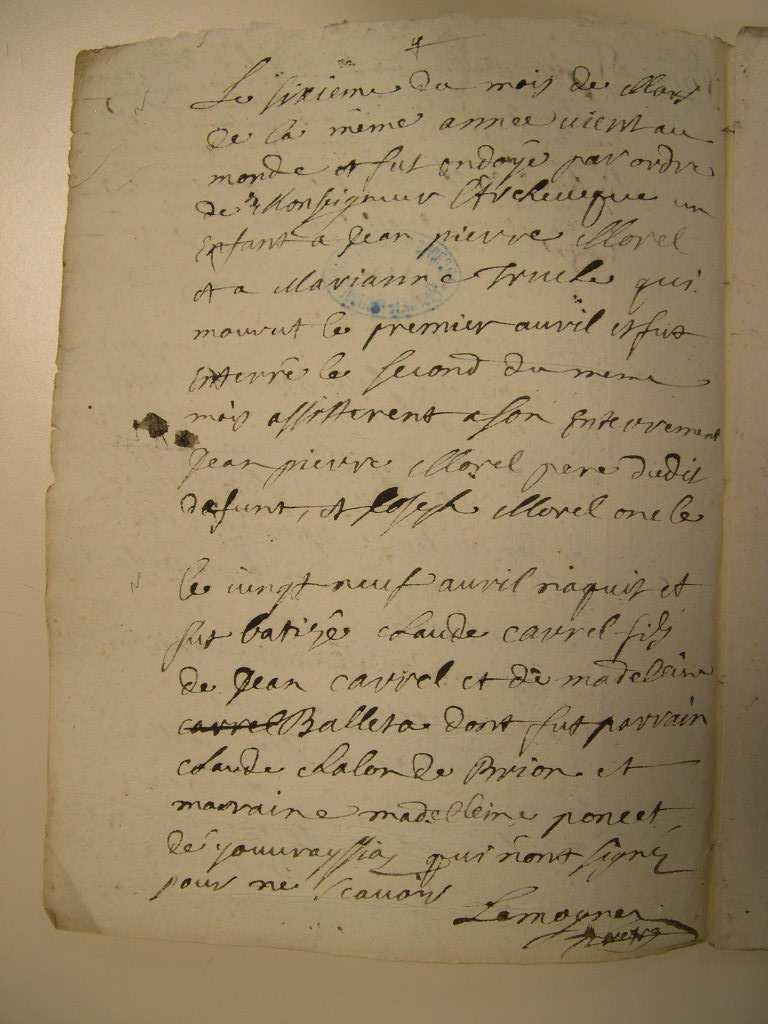 Le sixieme du mois de Mars
de la même année vient au
monde et fut endoyé par ordre
de Monseigneur l'Archeueque un
enfant a Jean pierre Morel
et a Marianne Truche qui
mourut le premier auril et fut
enterré le second du meme
mois assisterent a son Enterrement
Jean pierre Morel pere dudit
defunt, et Joseph Morel oncle
le uingt neuf auril naquit et
fut batizé claude carrel fils
de Jean carrel et de madelleine
carrel Balleta dont fut parrain
claude chalon de Brion et
marraine madelleine poncet
de qui n'ont signez
pour ne scauoir
Lemoyne